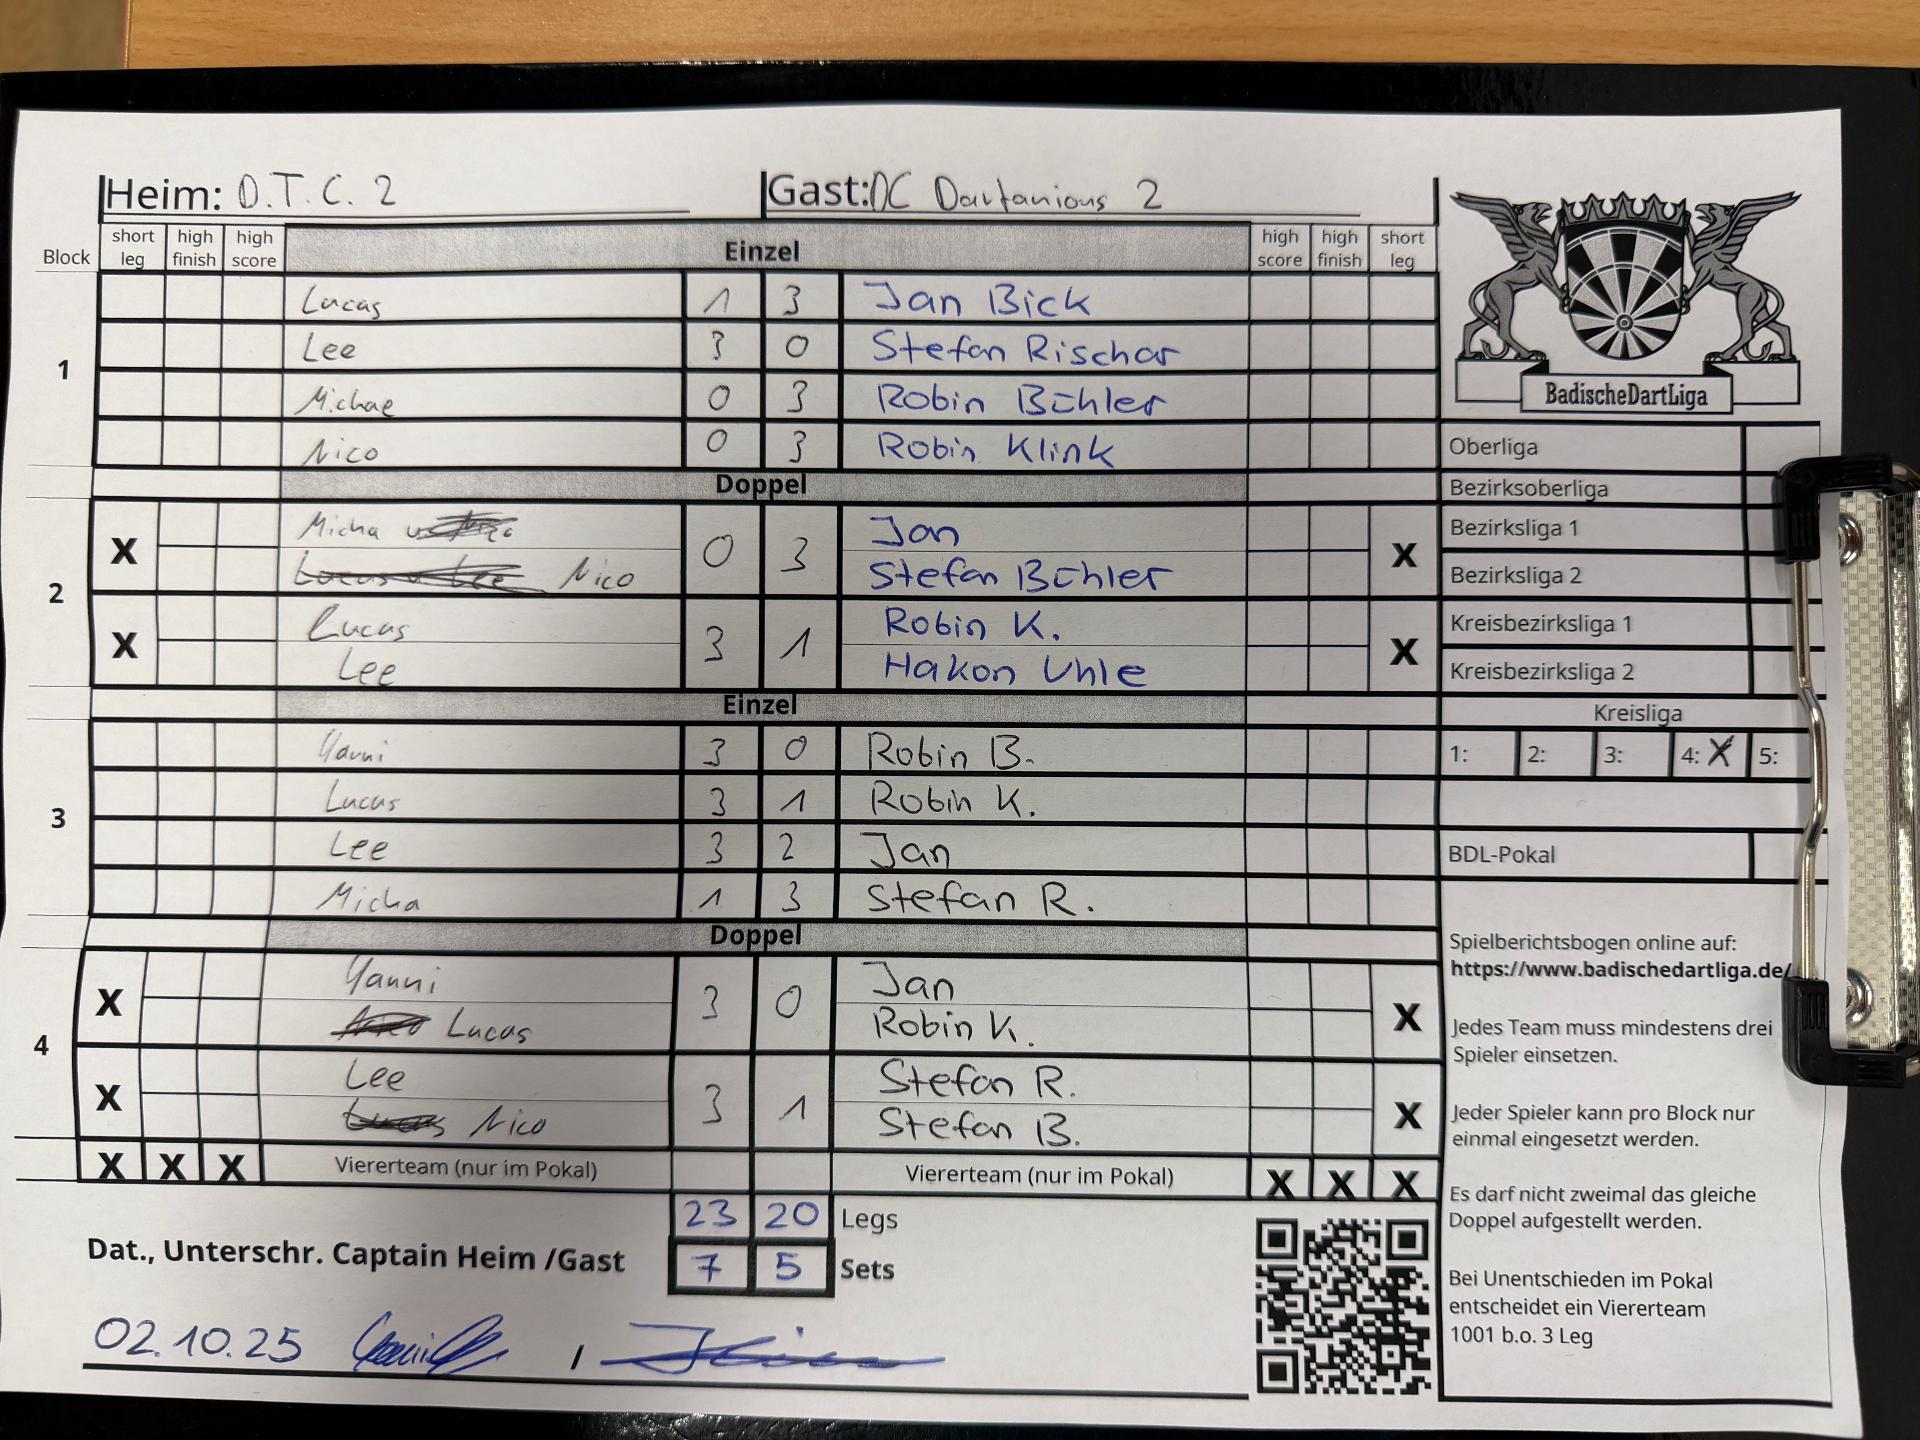 Heim: D.T.C. 2 Gast: DC Dartanious 2
Block short leg high finish high score Einzel high score high finish short leg
1
Lucas 1 3 Jan Bick
Lee 3 0 Stefan Rischar
Michae 0 3 Robin Bühler
Nico 0 3 Robin Klink
Doppel
2
X Micha 0 3 Jan X
Nico Stefan Bühler
X Lucas 3 1 Robin K. X
Lee Hakon Uhle
Einzel
3
Yanni 3 0 Robin B.
Lucas 3 1 Robin K.
Lee 3 2 Jan
Micha 1 3 Stefan R.
Doppel
4
X Yanni 3 0 Jan X
Lucas Robin K.
X Lee 3 1 Stefan R. X
Nico Stefan B.
X X X Viererteam (nur im Pokal) Viererteam (nur im Pokal) X X X
23 20 Legs
Dat., Unterschr. Captain Heim /Gast 7 5 Sets
02.10.25 /
BadischeDartLiga
Oberliga
Bezirksoberliga
Bezirksliga 1
Bezirksliga 2
Kreisbezirksliga 1
Kreisbezirksliga 2
Kreisliga
1: 2: 3: 4: X 5:
BDL-Pokal
Spielberichtsbogen online auf:
https://www.badischedartliga.de/
Jedes Team muss mindestens drei
Spieler einsetzen.
Jeder Spieler kann pro Block nur
einmal eingesetzt werden.
Es darf nicht zweimal das gleiche
Doppel aufgestellt werden.
Bei Unentschieden im Pokal
entscheidet ein Viererteam
1001 b.o. 3 Leg